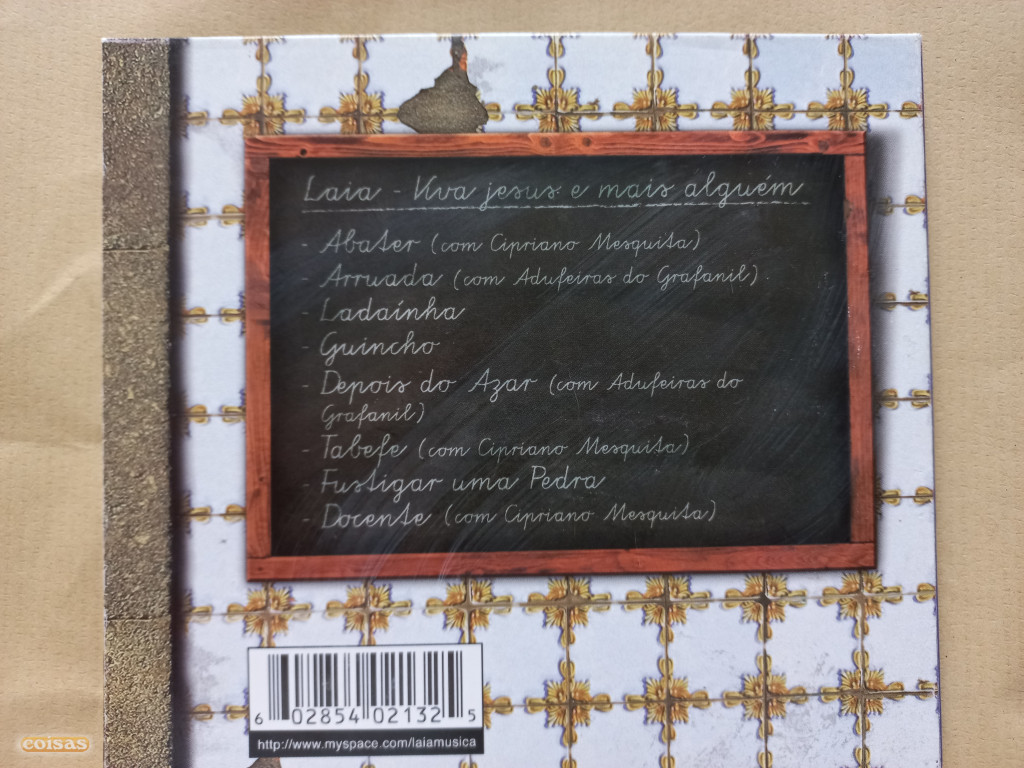 Laia - Viva jesus e mais alguém
- Abater (com Cipriano Mesquita)
- Arruada (com Adufeiras do Grafanil).
- Ladaínha
- Guincho
- Depois do Azar (com Adufeiras do
Grafanil)
- Tabefe (com Cipriano Mesquita)
- Fustigar uma Pedra
- Docente (com Cipriano Mesquita)
6 02854 02132 5
http://www.myspace.com/laiamusica
coisas